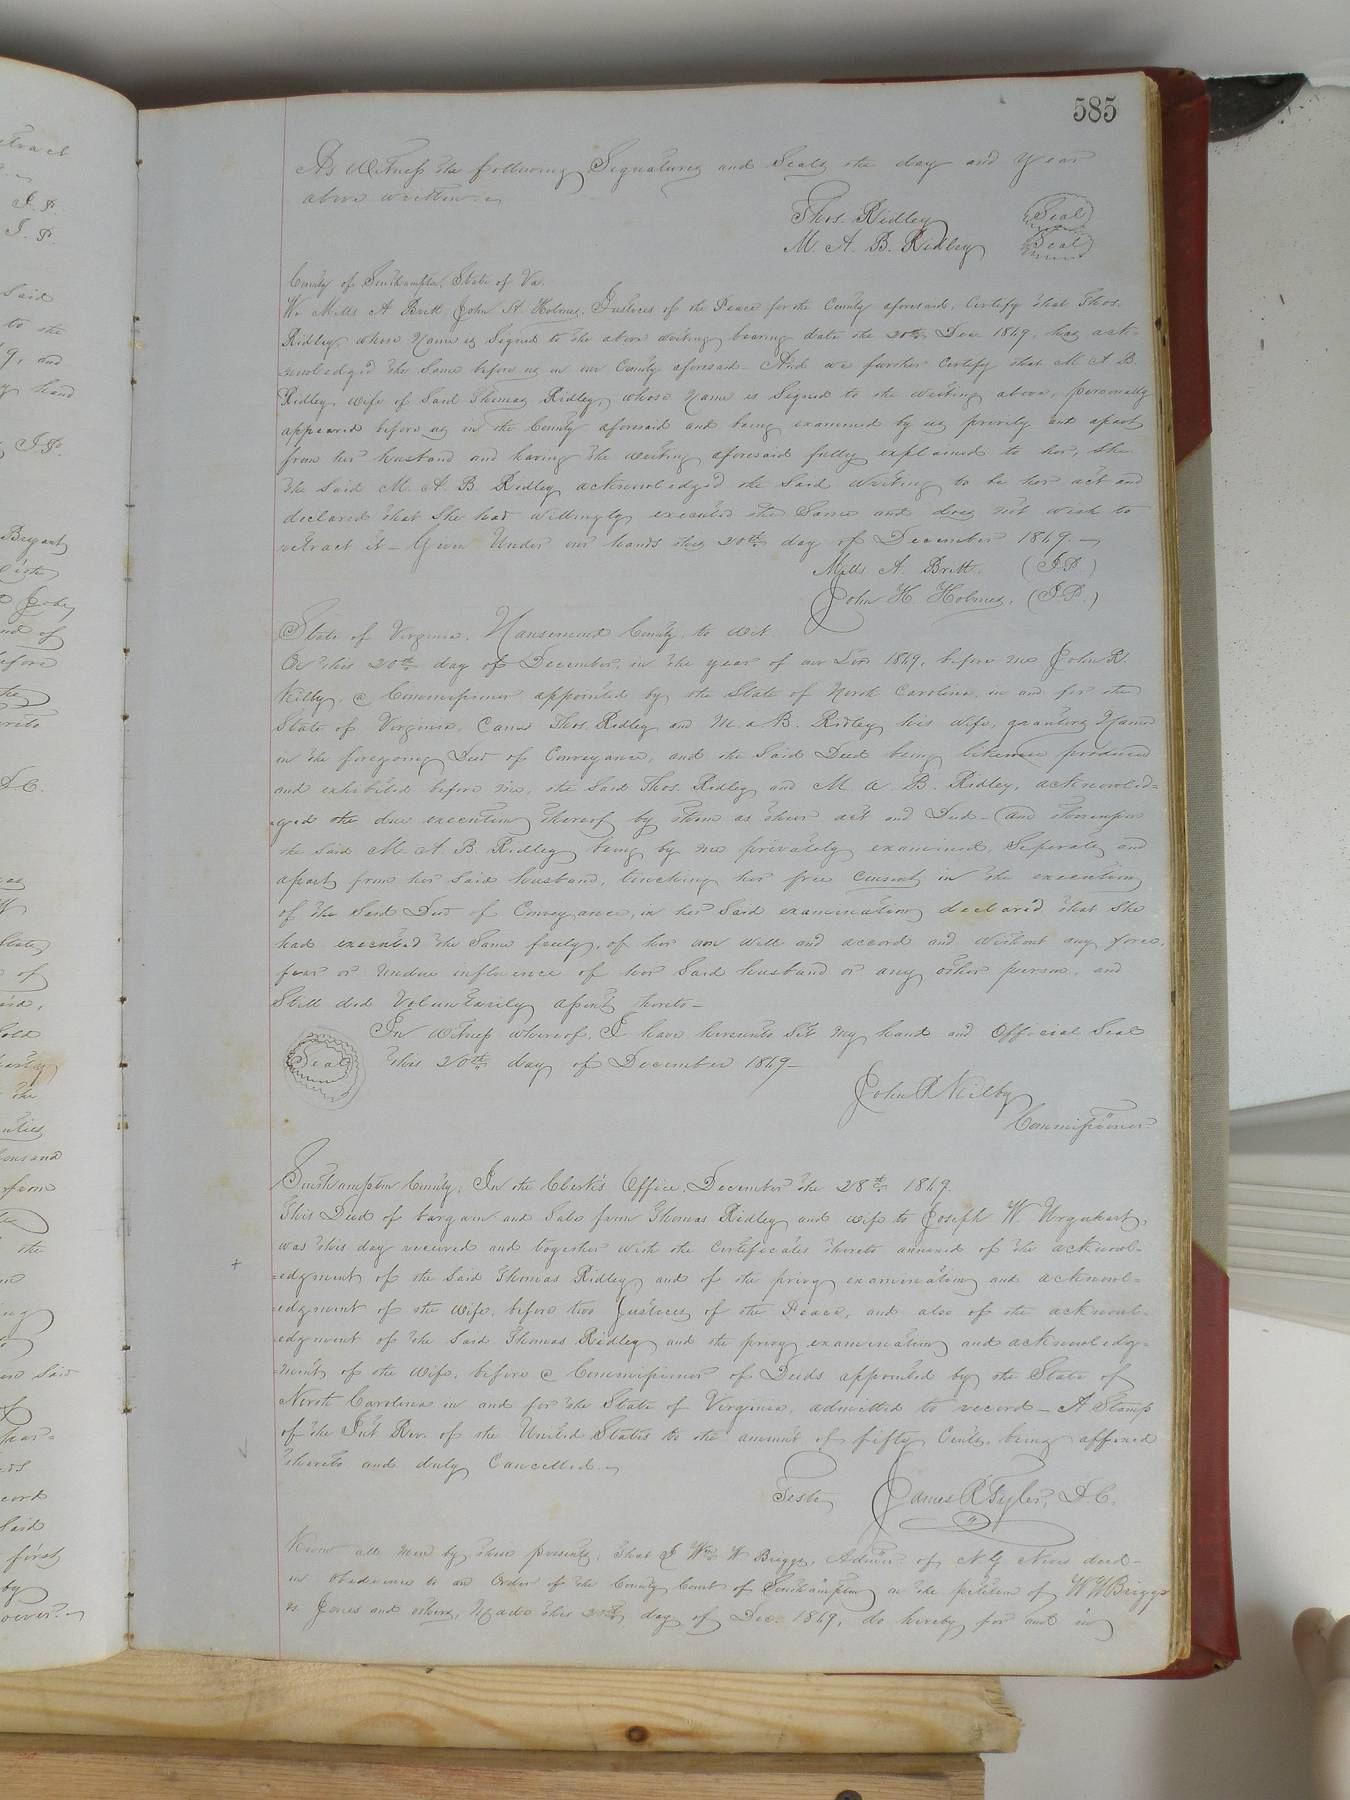 585
As Witness the following Signatures and Seals the day and Year
above written.
Thos. Ridley Seal
M. A. B. Ridley Seal
County of Southampton, State of Va.
We Mills A. Britt John H. Holmes, Justices of the Peace for the County aforesaid, Certify that Thos.
Ridley, whose Name is Signed to the above writing bearing date the 20th Dec 1869, has ack-
nowledged the Same before us in our County aforesaid - And we further Certify that M A B.
Ridley, wife of Said Thomas Ridley, whose Name is Signed to the writing above, personally
appeared before us in the County aforesaid and being examined by us privily and apart
from her husband and having the writing aforesaid fully explained to her, She
the Said M. A. B. Ridley acknowledged the Said Writing to be her act and
declared that She had willingly executed the Same and does not wish to
retract it - Given Under our hands this 20th day of December 1869. -
Mills A. Britt. (J.P.)
John H Holmes. (J.P.)
State of Virginia, Nansemond County, to wit.
On this 20th day of December, in the year of our Lord 1869, before me John R.
Kilby, a Commissioner appointed by the State of North Carolina, in and for the
State of Virginia, Came Thos. Ridley and M. A B. Ridley his wife, grantors Named
in the foregoing Deed of Conveyance, and the Said Deed being likewise produced
and exhibited before me, the Said Thos. Ridley and M. A. B. Ridley, acknowled=
ged the due execution thereof by them as their act and Deed - And thereupon
the Said M. A. B Ridley being by me privately examined, Seperate and
apart from her Said husband, touching her free Consent in the execution
of the Said Deed of Conveyance, in her Said examination declared that She
had executed the Same freely, of her own will and accord and without any force,
fear or Undue influence of her Said husband or any other person, and
Still did Voluntarily assent thereto -
In witness whereof, I have hereunto Set my hand and Official Seal
Seal this 20th day of December 1869 -
John R Kilby
Commissioner
Southampton County, In the Clerk's Office, December the 28th 1869
This Deed of bargain and Sale from Thomas Ridley and wife to Joseph W Urquhart,
was this day received and together with the Certificates thereto annexed of the acknowl=
=edgment of the Said Thomas Ridley and of the privy examination and acknowl=
=edgment of the wife, before two Justices of the Peace, and also of the acknowl-
edgment of the Said Thomas Ridley and the privy examination and acknowledg=
=ment of the wife, before a Commissioner of Deeds appointed by the State of
North Carolina in and for the State of Virginia, admitted to record - A Stamp
of the Int Rev. of the United States to the amount of fifty Cents, being affixed
thereto and duly Cancelled.
Teste James R Tyler, D.C.
Know all men by these presents, that I Wm W Briggs, Admr of N G deed -
in obedience to an Order of the County Court of Southampton on the petition of W W Briggs
vs Jones and others, Made this 20th day of Dec. 1869, do hereby for and in